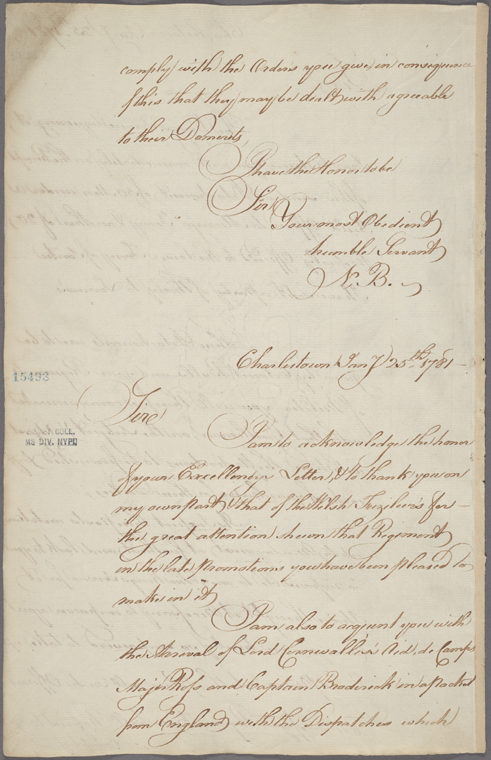 comply with the Orders you give in consequence
of this that they may be dealt with agreeable
to their Demerits,
I have the Honor to be
Sir
Your most Obedient
humble Servant
N. B.
Charlestown Jany 25th 1781
15493
Sir
EMMET COLL.
MS DIV. NYPL
I am to acknowledge the honor
of your Excellencys Letter, & to thank you on
my own part & that of the Welsh Fuzileers for
the great attention shewn that Regiment
in the late promotions you have been pleased to
make in it,
I am also to acqunt you with
the Arrival of Lord Cornwallis's Aid, de Camps
Major Ross and Captain Broderick in a Packet
from England with the Dispatches which